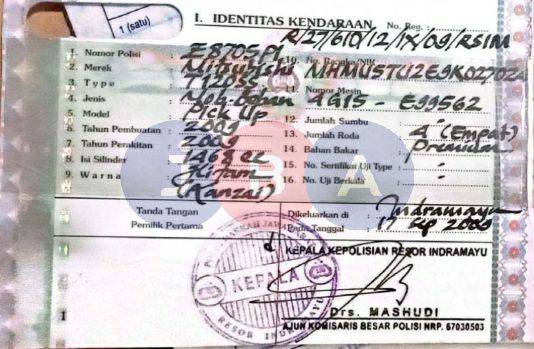 1 (satu)
I. IDENTITAS KENDARAAN, No. Reg.:
R/27/610/12/IX/09/RSIM
1. Nomor Polisi : E8705PI
2. Merek : Mitsubishi
3. Type :
4. Jenis : Mob. Beban
5. Model : Pick Up
6. Tahun Pembuatan : 2009
7. Tahun Perakitan : 2009
8. Isi Silinder : 1468 cc
9. Warna : Hitam
(Kanzai)
10. No. Rangka/NIK : MHMU5TU2E9K027024
11. Nomor Mesin
: 4G15 - E99562
12. Jumlah Sumbu : "
13. Jumlah Roda : 4 (Empat)
14. Bahan Bakar : Premium
15. No. Sertifikat Uji Type : "
16. No. Uji Berkala : "
ESA
Tanda Tangan
Pemilik Pertama
Dikeluarkan di : Indramayu
Pada Tanggal : 17 Sep 2009
KEPALA KEPOLISIAN RESOR INDRAMAYU
KEPALA
RESOR INDRAMAYU
Drs. MASHUDI
AJUN KOMISARIS BESAR POLISI NRP. 67030503
1